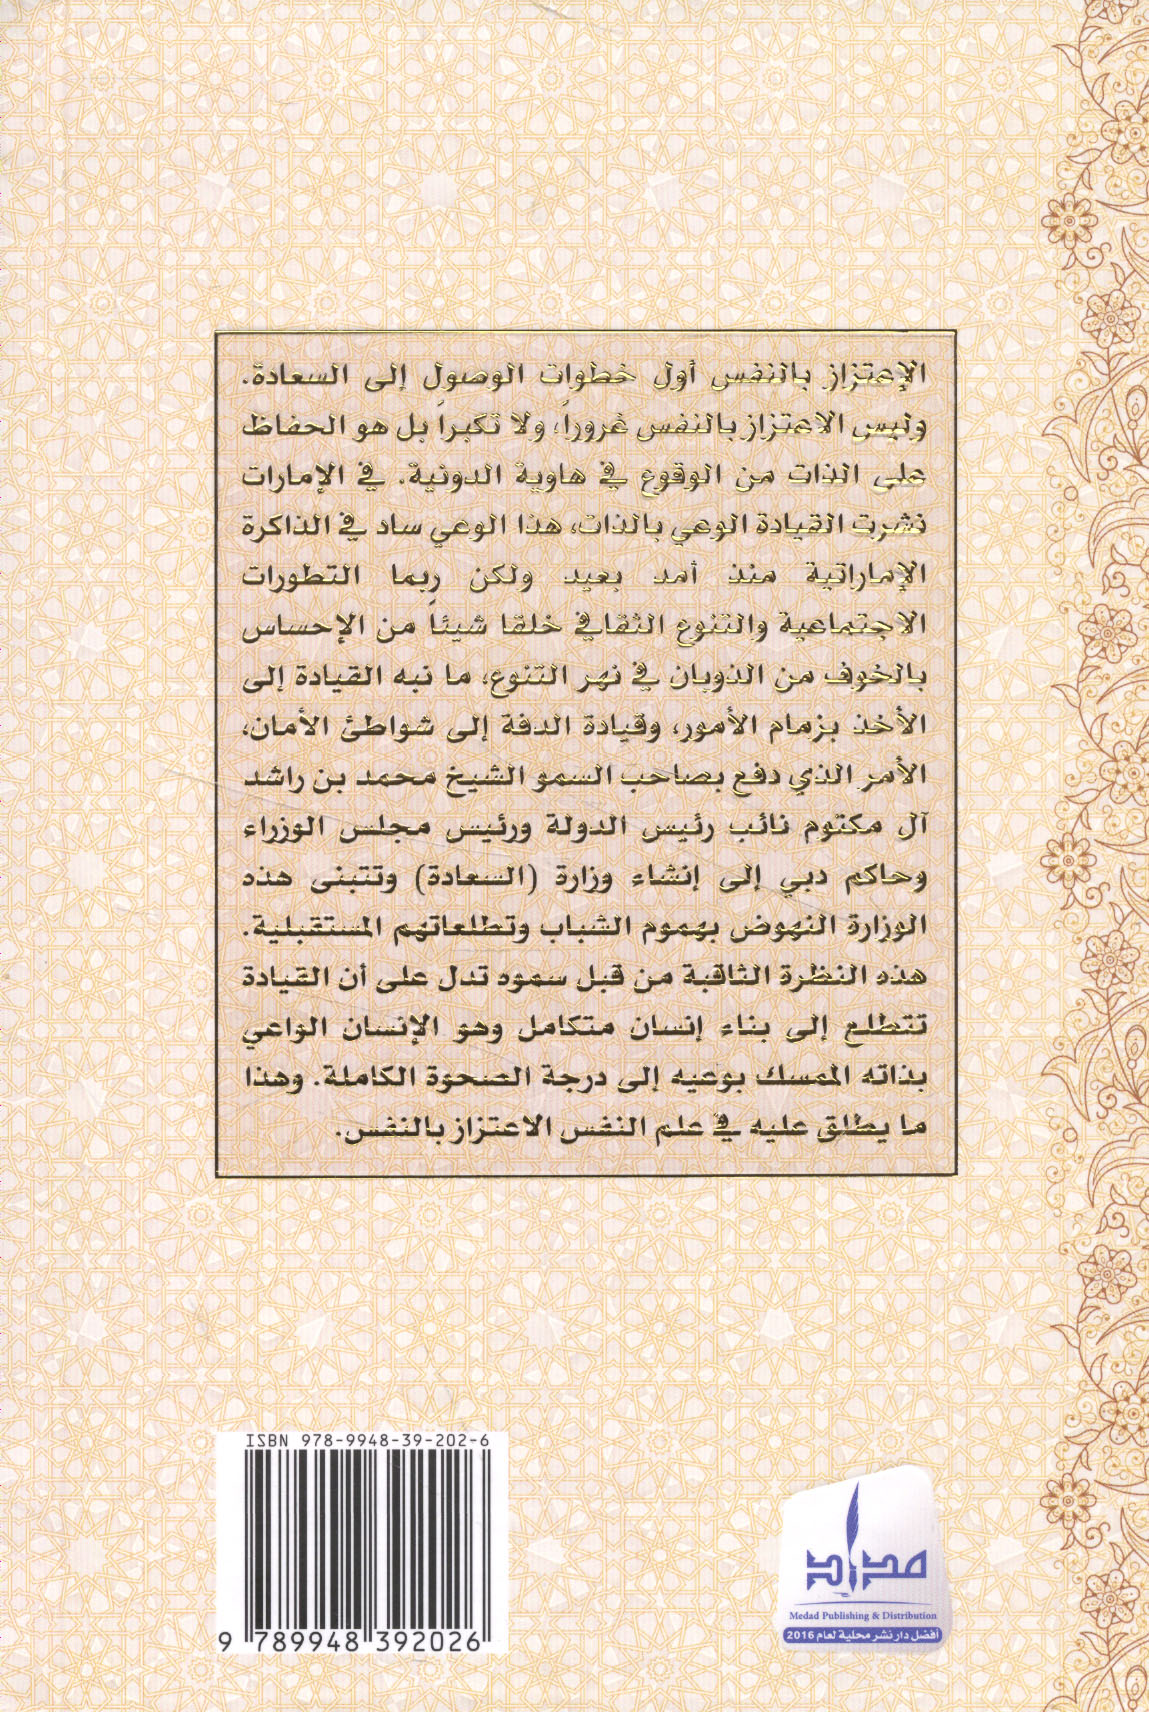 الإعتزاز بالنفس أول خطوات الوصول إلى السعادة.
وليس الاعتزاز بالنفس غروراً، ولا تكبراً بل هو الحفاظ
على الذات من الوقوع في هاوية الدونية. في الإمارات
نشرت القيادة الوعي بالذات، هذا الوعي ساد في الذاكرة
الإماراتية منذ أمد بعيد ولكن ربما التطورات
الاجتماعية والتنوع الثقافي خلقا شيئاً من الإحساس
بالخوف من الذوبان في نهر التنوع، ما نبه القيادة إلى
الأخذ بزمام الأمور، وقيادة الدفة إلى شواطئ الأمان،
الأمر الذي دفع بصاحب السمو الشيخ محمد بن راشد
آل مكتوم نائب رئيس الدولة ورئيس مجلس الوزراء
وحاكم دبي إلى إنشاء وزارة (السعادة) وتتبنى هذه
الوزارة النهوض بهموم الشباب وتطلعاتهم المستقبلية.
هذه النظرة الثاقبة من قبل سموه تدل على أن القيادة
تتطلع إلى بناء إنسان متكامل وهو الإنسان الواعي
بذاته الممسك بوعيه إلى درجة الصحوة الكاملة. وهذا
ما يطلق عليه في علم النفس الاعتزاز بالنفس.
ISBN 978-9948-39-202-6
9 789948 392026
مداد
Medad Publishing & Distribution
أفضل دار نشر محلية لعام 2016